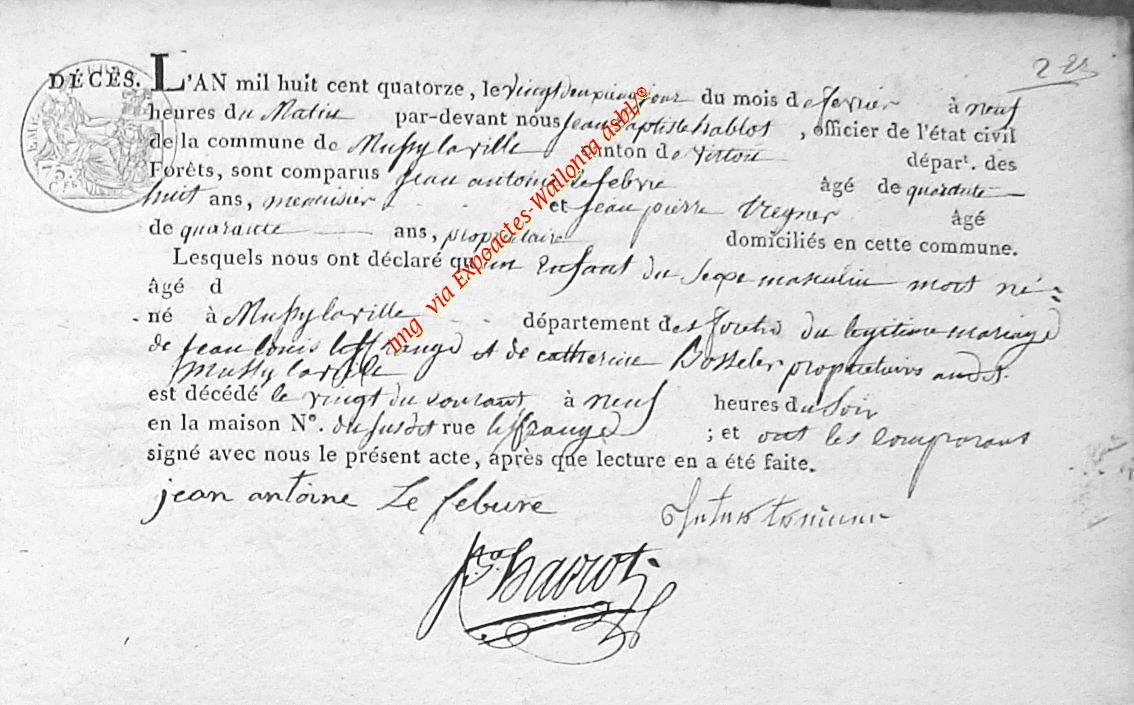 2
DÉCÈS. L'AN mil huit cent quatorze, le vingt deuxieme jour du mois de fevrier à neuf
heures du Matin par-devant nous Jean Baptiste , officier de l'état civil
de la commune de Mussy laville canton de Virton départ. des
Forêts, sont comparus Jean antoine Lefebvre âgé de quarante
huit ans, menuisier et Jean pierre âgé
de quarante ans, proprietaire domiciliés en cette commune.
Lesquels nous ont déclaré qu'un Enfant du Sexe masculin mort né
âgé d
né à Mussy laville département des forets du legitime mariage
de Jean Louis et de catherine Bosseler proprietaires
Mussy laville
est décédé le vingt du courant à neuf heures du Soir
en la maison N°. du susdit rue ; et ont les comparant
signé avec nous le présent acte, après que lecture en a été faite.
jean antoine Le febvre
75.
CES
nmg via Expoactes-Wallonia asbl ©